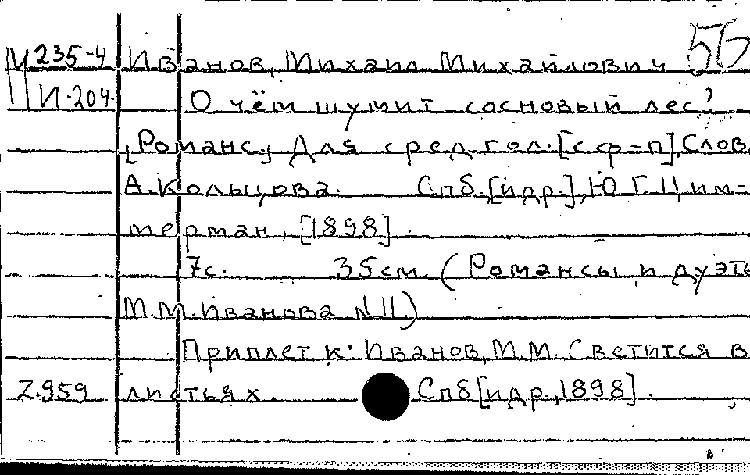 М 235-4 Иванов, Михаил Михайлович
И-204 О чём шумит сосновый лес?
[Романс] Для сред. гол. [с ф-п]. Слов.
А. Кольцова. Спб. [и др.], Ю. Г. Цим-
мерман, [1898].
7с. 35см. (Романсы и дуэты
М. М. Иванова N 11)
Приплет к: Иванов, М.М. Светится в
листьях. Спб [и др., 1898].